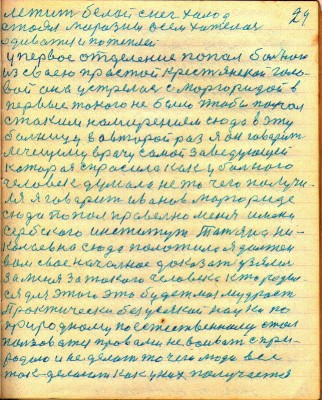 29
летит белой снег холод
стоял морозни всем хателас
одиватся потеплей
у первое отделение попал больного
из своею простой крестянской голо-
вой он а устрелас с Моргоридой в
первые такого не было чтобы попал
стаким намирением сюда в эту
болницу в авторой раз я он говорит
лечущему врачу самой заведующей
которая спрасила как у больного
человек думала не то чего получи-
ля я говарит иванов моргориде
сюда попал правелно меня имени
сербского институт Татяна ни-
колаевна сюда положила я должон
вам свое началное доказат узяли
за меня за такого человека кто родил
ся для этого это будет моя мудраст
Практически без усякой науки по
природному по естественному стал
ползоватся правами не воиват с при-
родаю и не делат то чего люди все
так делают как у них получается